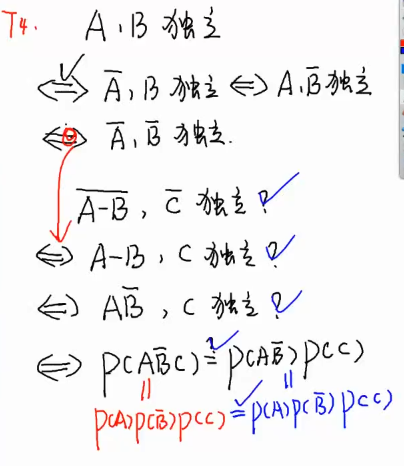 T4. A,B 独立
⇔ Ā,B 独立 ⇔ A,B̄ 独立
⇔ Ā,B̄ 独立.
\overline{A-B}, C̄ 独立?
⇔ A-B, C 独立?
⇔ AB̄, C 独立?
⇔ P(AB̄C) ≟ P(AB̄)P(C)
P(A)P(B̄)P(C) = P(A)P(B̄)P(C)